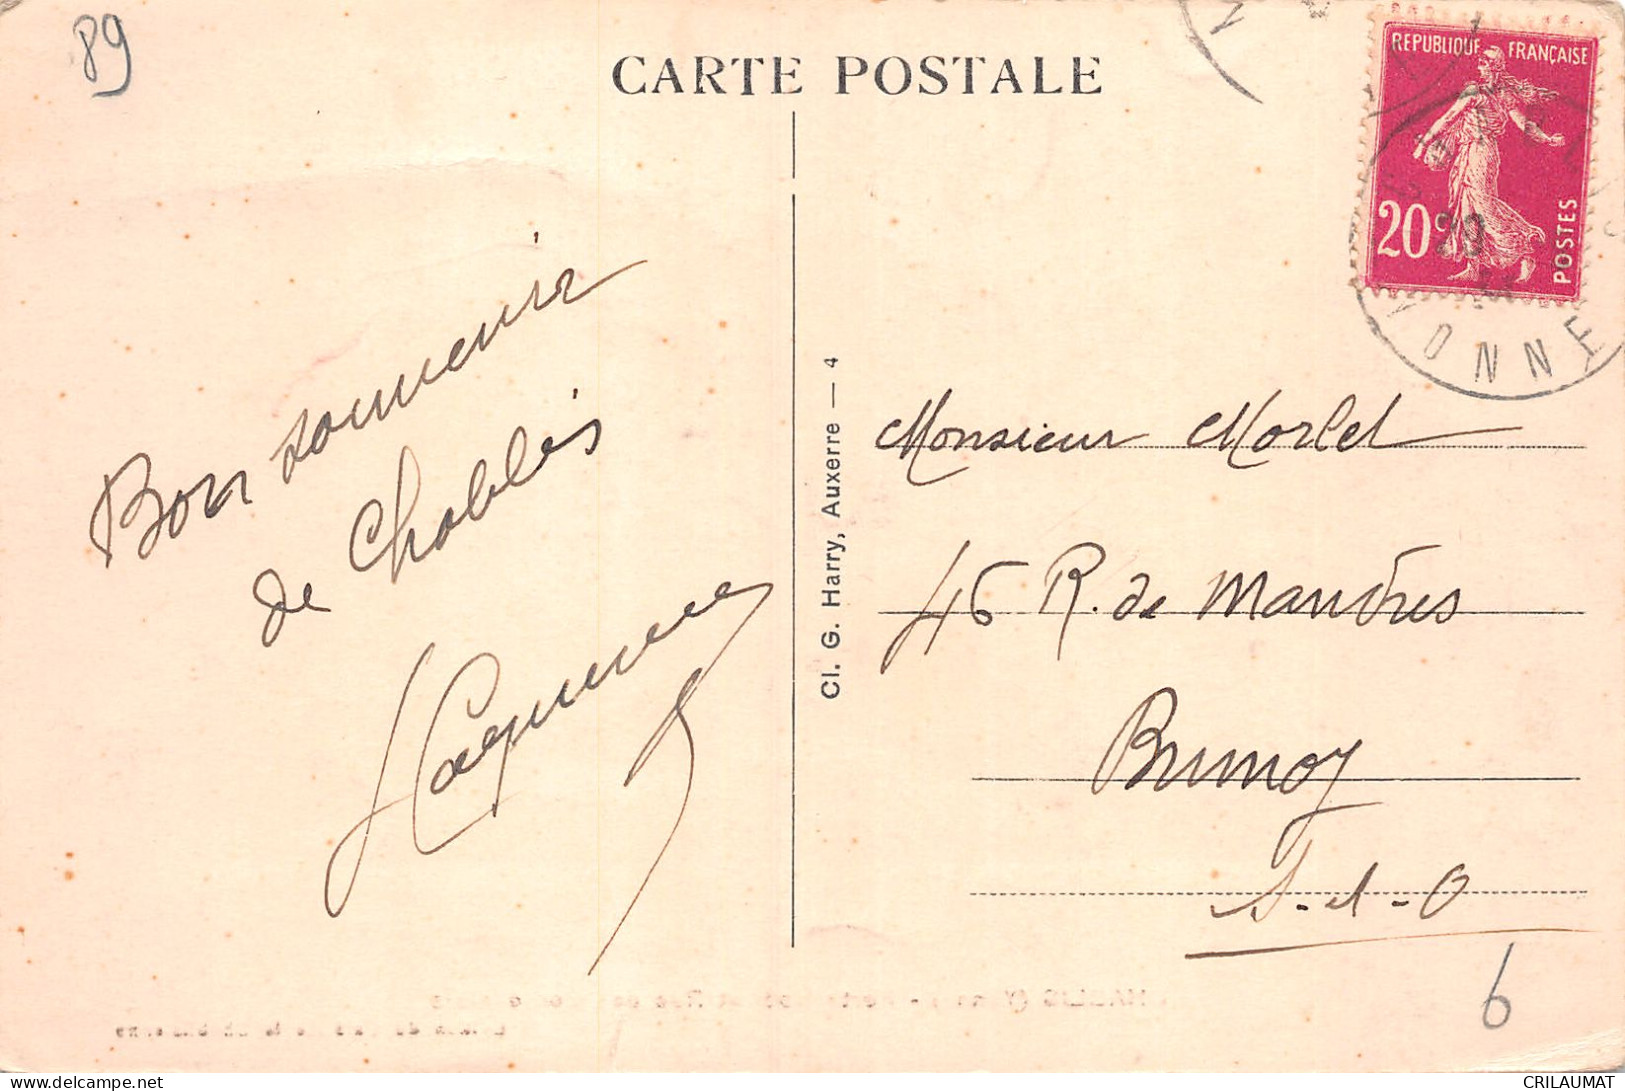 89
CARTE POSTALE
REPUBLIQUE FRANÇAISE
20c
POSTES
YONNE
Bon souvenir
de Chablis
Cl. G. Harry, Auxerre — 4
Monsieur Morlet
46 R. de Mandres
Brunoy
S-et-O
6
CRILAUMAT